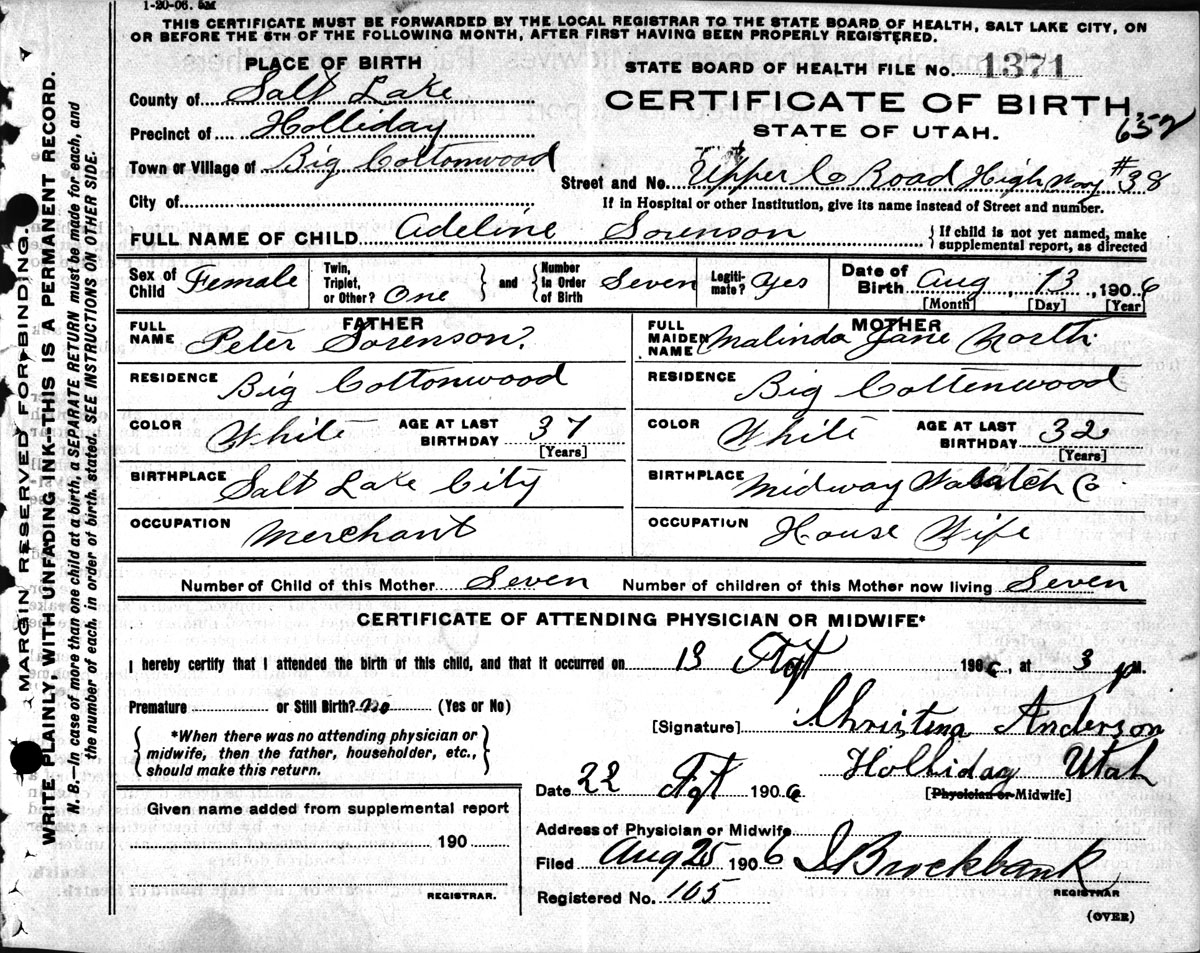 1-20-06. 5M
THIS CERTIFICATE MUST BE FORWARDED BY THE LOCAL REGISTRAR TO THE STATE BOARD OF HEALTH, SALT LAKE CITY, ON
OR BEFORE THE 5TH OF THE FOLLOWING MONTH, AFTER FIRST HAVING BEEN PROPERLY REGISTERED.
MARGIN RESERVED FOR BINDING.
WRITE PLAINLY, WITH UNFADING INK—THIS IS A PERMANENT RECORD.
N. B.—In case of more than one child at a birth, a SEPARATE RETURN must be made for each, and
the number of each, in order of birth, stated. SEE INSTRUCTIONS ON OTHER SIDE.
PLACE OF BIRTH
County of Salt Lake
Precinct of Holliday
Town or Village of Big Cottonwood
City of
STATE BOARD OF HEALTH FILE No. 1371
CERTIFICATE OF BIRTH.
652
STATE OF UTAH.
Street and No. Upper C Road High Way #38
If in Hospital or other Institution, give its name instead of Street and number.
FULL NAME OF CHILD Adeline Sorenson
{If child is not yet named, make
supplemental report, as directed
Sex of Child Female
Twin, Triplet, or Other? One
} and {
Number In Order of Birth Seven
Legitimate? Yes
Date of Birth Aug 13, 1906
[Month] [Day] [Year]
FATHER
FULL NAME Peter Sorenson.
RESIDENCE Big Cottonwood
COLOR White AGE AT LAST BIRTHDAY 37
[Years]
BIRTHPLACE Salt Lake City
OCCUPATION Merchant
MOTHER
FULL MAIDEN NAME Malinda Jane North
RESIDENCE Big Cottenwood
COLOR White AGE AT LAST BIRTHDAY 32
[Years]
BIRTHPLACE Midway Wasatch Co
OCCUPATION House Wife
Number of Child of this Mother Seven Number of children of this Mother now living Seven
CERTIFICATE OF ATTENDING PHYSICIAN OR MIDWIFE*
I hereby certify that I attended the birth of this child, and that it occurred on 13 1906, at 3 p M.
Premature or Still Birth? no (Yes or No)
{*When there was no attending physician or
midwife, then the father, householder, etc.,
should make this return.}
[Signature] Christina Anderson
Holliday Utah
Date 22 1906 [Physician or Midwife]
Given name added from supplemental report
190
REGISTRAR.
Address of Physician or Midwife
Filed Aug 25 1906 Brockbank
REGISTRAR
Registered No. 105
(OVER)